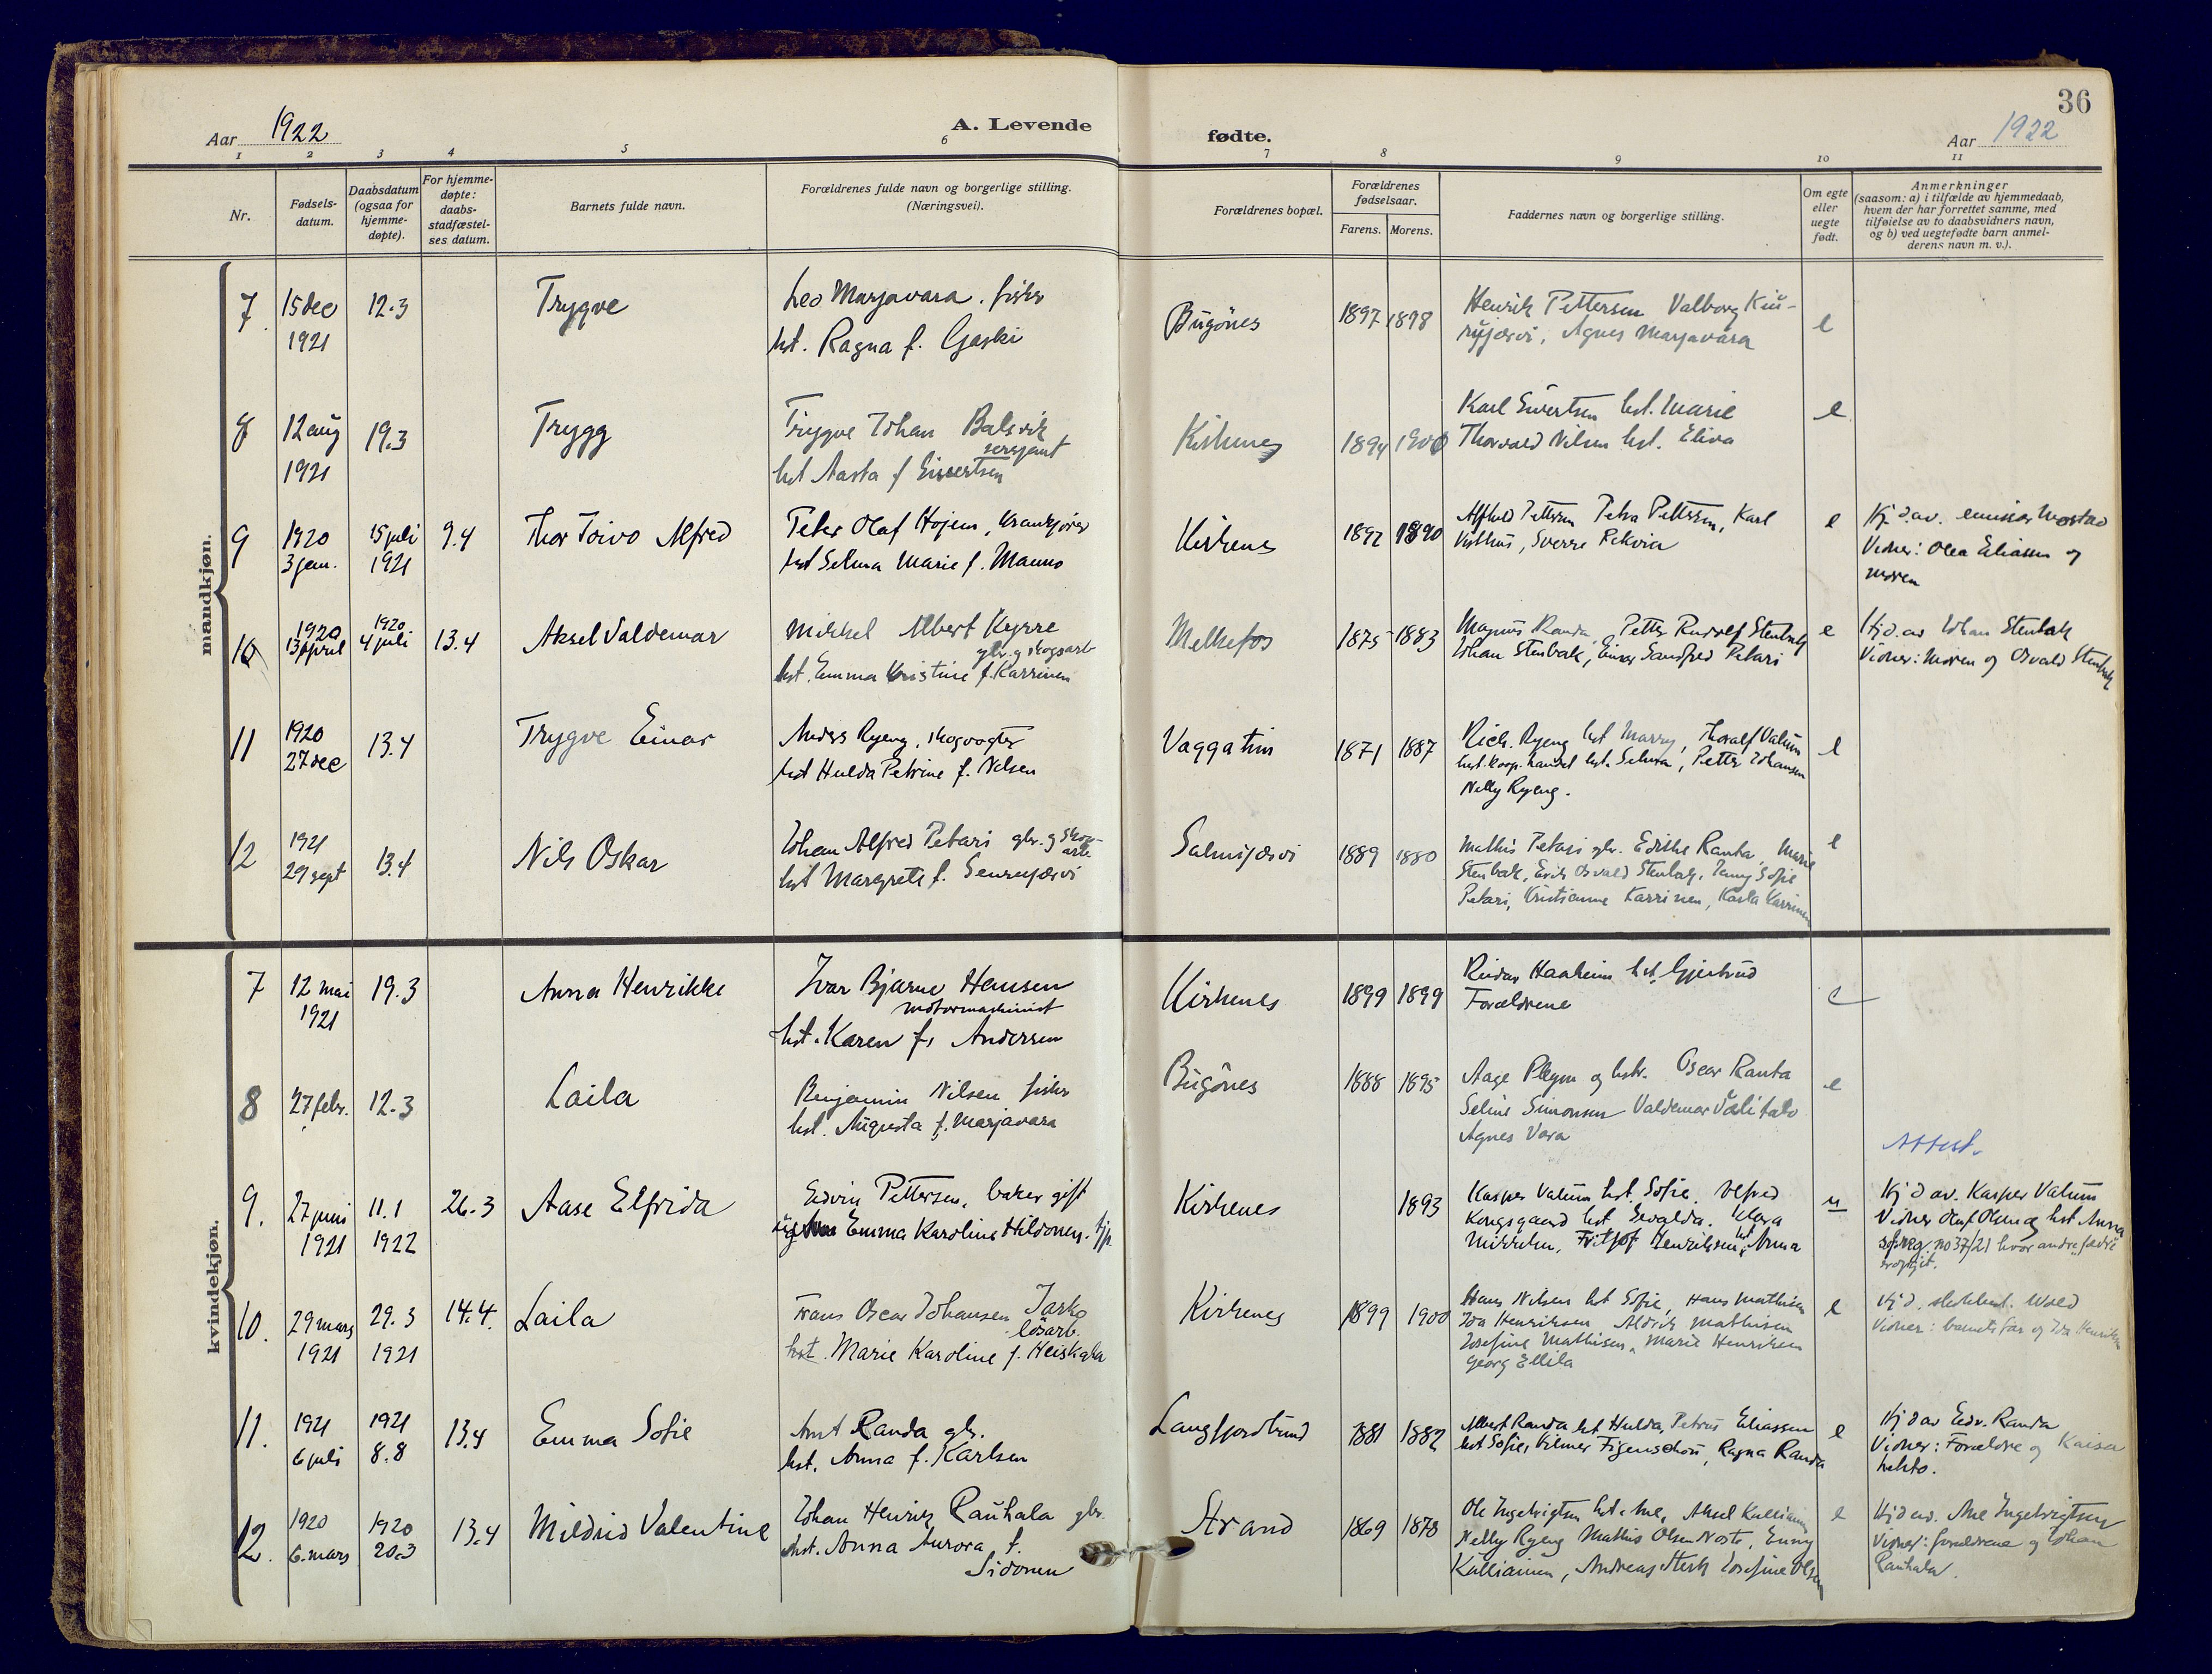 36
Aar 1922
A. Levende
fødte.
Aar 1922
1 2 3 4 5 6 7 8 9 10 11
Nr.
Fødsels-
datum.
Daabsdatum
(ogsaa for
hjemme-
døpte).
For hjemme-
døpte:
daabs-
stadfæstel-
ses datum.
Barnets fulde navn.
Forældrenes fulde navn og borgerlige stilling.
(Næringsvei).
Forældrenes bopæl.
Forældrenes
fødselsaar.
Farens. Morens.
Faddernes navn og borgerlige stilling.
Om egte
eller
uegte
født.
Anmerkninger
(saasom: a) i tilfælde av hjemmedaab,
hvem der har forrettet samme, med
tilføielse av to daabsvidners navn,
og b) ved uegtefødte barn anmel-
derens navn m. v.).
mandkjøn.
7
15 dec
1921
12.3
Trygve
Leo Marjavara. fisker
hst. Ragna f. Gaski
Bugönes
1897 1898
Henrik Pettersen Valborg Kiu-
rujærvi, Agnes Marjavara
e
8
12 aug
1921
19.3
Trygg
Trygve Johan Balsvik
sersjant
hst Aasta f Sivertsen
Kirkenes
1894 1900
Karl Sivertsen hst. Marie
Thorvald Nilsen hst. Eliva
e
9
1920
3 jan.
15 juli
1921
9.4
Thor Toivo Alfred
Peter Olaf Hojem, krankjører
hst Selma Marie f. Manno
Kirkenes
1892 1890
Alfhild Pettersen Petra Pettersen, Karl
Visthus, Sverre Rekvia
e
Hj. d. av. emissær Mostad
Vidner: Olea Eliassen og
moren
10
1920
13 april
1920
4 juli
13.4
Aksel Valdemar
Mikkel Albert Kyrre
gbr. og skogsarb
hst. Emma Kristine f. Karrinen
Melkefos
1875 1883
Magnus Randa, Petter Rudolf Stenbak
Johan Stenbak, Einar Sanfred Petari
e
Hj d. av Johan Stenbak
Vidner: Moren og Osvald Stenbak
11
1920
27 dec
13.4
Trygve Einar
Anders Ryeng, skogvogter
hst Hulda Petrine f. Nilsen
Vaggatim
1871 1887
Rich. Ryeng hst Marry, Thoralf Vatum
best. koop. handel hst. Selma, Petter Johansen
Nelly Ryeng.
e
12
1921
29 sept
13.4
Nils Oskar
Johan Alfred Petari gbr. og skog-
arb.
hst Margrete f. Seurujærvi
Salmijærvi
1889 1880
Mathis Petari gbr. Edithe Ranta, Marie
Stenbak, Erik Osvald Stenbak, Jenny Sofie
Petari, Kristianne Karrinen, Karla Karrinen
e
kvindekjøn.
7
12 mai
1921
19.3
Anna Henrikke
Ivar Bjarne Hansen
motormaskinist
hst. Karen f. Andersen
Kirkenes
1899 1899
Reidar Haaheim hst Gjertrud
Forældrene
e
8
27 febr.
12.3
Laila
Benjamin Nilsen fisker
hst. Augusta f. Marjavara
Bugönes
1888 1895
Aage Pleym og hstr. Oscar Ranta
Seline Simonsen Valdemar Välitalo
Agnes Vara
e
Attest.
9.
27 juni
1921
11.1
1922
26.3
Aase Elfrida
Edvin Pettersen, baker gift
ug Emma Karoline Hildonen. tjp.
Kirkenes
1893
Kasper Vatum hst. Sofie. Alfred
Kongsgaard hst Sevalda. Klara
Mikkelsen, Fritjof Henriksen hst Anna
u
Hj d av. Kasper Vatum
Vidner Oluf Olsen og hst Anna
no 37/21 hvor andre fædre
10.
29 mars
1921
29.3
1921
14.4.
Laila
Frans Oscar Johansen Jarko
løsarb.
hst. Marie Karoline f. Heiskala
Kirkenes
1899 1900
Hans Nilsen hst Sofie, Hans Mathisen
Ida Henriksen Aldrik Mathisen
Josefine Mathisen, Marie Henriksen
Georg Ellila
e
Hj d. Wold
Vidner: barnets far og Ida Henriksen
11.
1921
6 juli
1921
8.8
13.4
Emma Sofie
Arnt Randa gbr.
hst. Anna f. Karlsen
Langfjordbund
1881 1882
Albert Randa hst Hulda, Petrus Eliassen
hst Sofie, Hilmer Figenschou, Ragna Randa
e
Hj d av Edv. Randa
Vidner: Forældre og Kaisa
Lehto.
12.
1920
6. mars
1920
20.3
13.4
Mildrid Valentine
Johan Henrik Rauhala gbr.
hst. Anna Aurora f.
Sidonen
Strand
1869 1878
Ole Ingebrigtsen hst. Ane, Aksel Kalliainen
Nelly Ryeng Mathis Olsen Noste, Enny
Kalliainen, Andreas Sterk Josefine Olsen
e
Hj d av. Ane Ingebrigtsen
Vidner: forældrene og Johan
Rauhala.